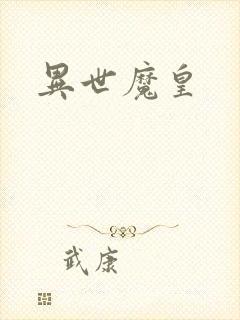 異世魔皇
武康